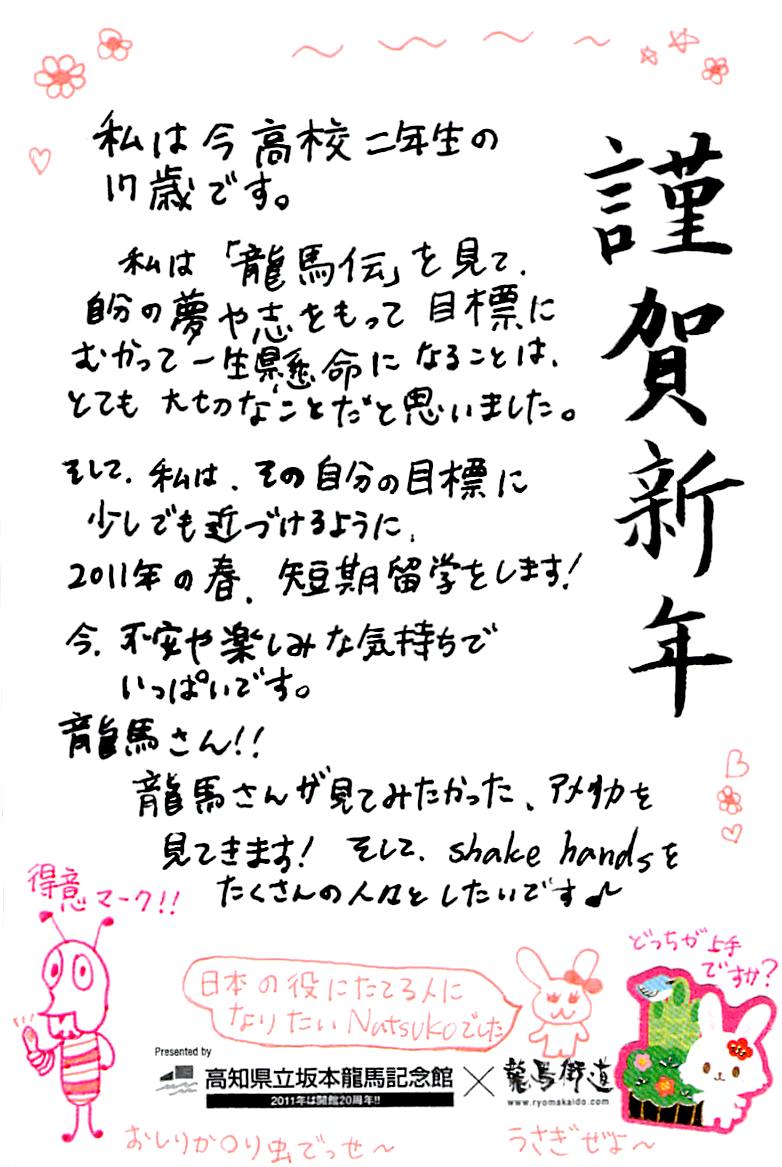 謹賀新年
私は今高校二年生の
17歳です。
私は「龍馬伝」を見て、
自分の夢や志をもって目標に
むかって一生懸命になることは、
とても大切なことだと思いました。
そして、私は、その自分の目標に
少しでも近づけるように、
2011年の春、短期留学をします!
今、不安や楽しみな気持ちで
いっぱいです。
龍馬さん!!
龍馬さんが見てみたかった、アメリカを
見てきます! そして、shake handsを
たくさんの人々としたいです♪
得意マーク!!
日本の役にたてる人に
なりたいNatsukoでした
どっちが上手
ですか?
Presented by
高知県立坂本龍馬記念館
2011年は開館20周年!!
×
龍馬街道
www.ryomakaido.com
おしりか〇り虫でっせ～
うさぎぜよ～